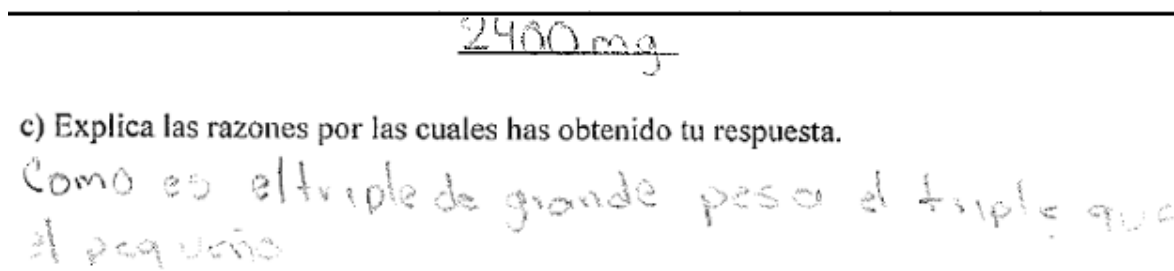 2400 mg
c) Explica las razones por las cuales has obtenido tu respuesta.
Como es el triple de grande pesa el triple que
el pequeño